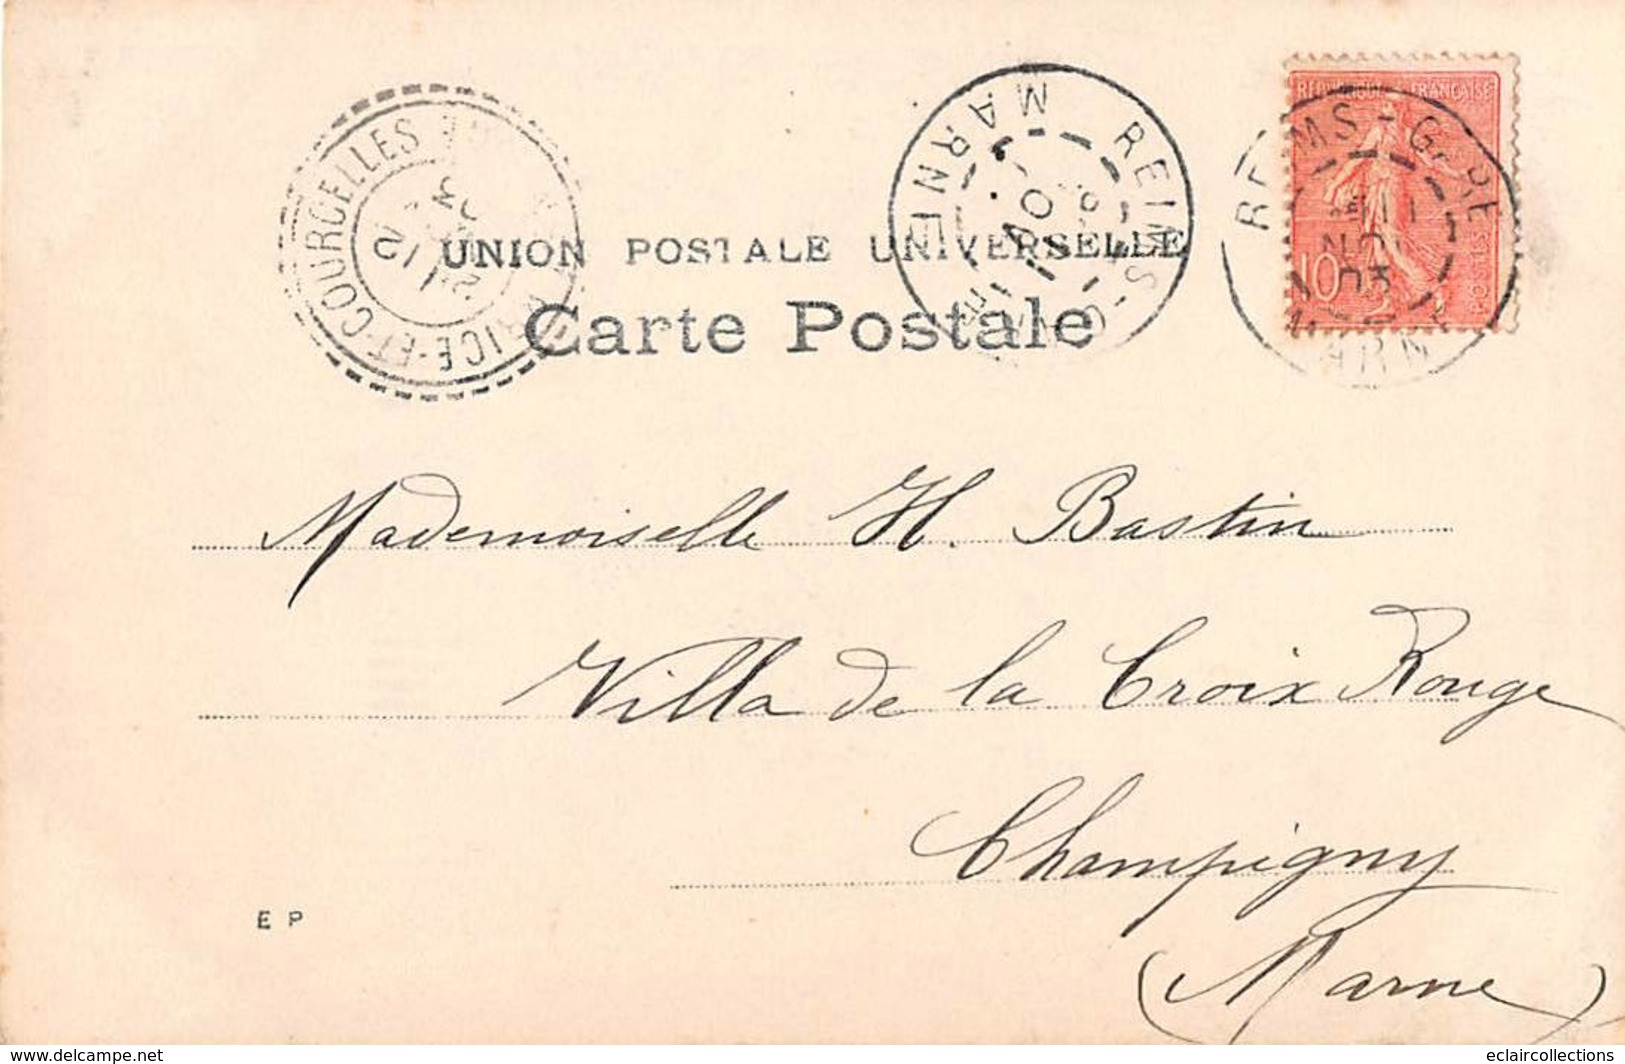 RÉPUBLIQUE FRANÇAISE
REIMS-GARE
MARNE
10
POSTES
03
REIMS
MARNE
ET-COURCELLES
UNION POSTALE UNIVERSELLE
Carte Postale
Mademoiselle H. Bastin
Villa de la Croix Rouge
Champigny
(Marne)
E P
www.delcampe.net
eclaircollections